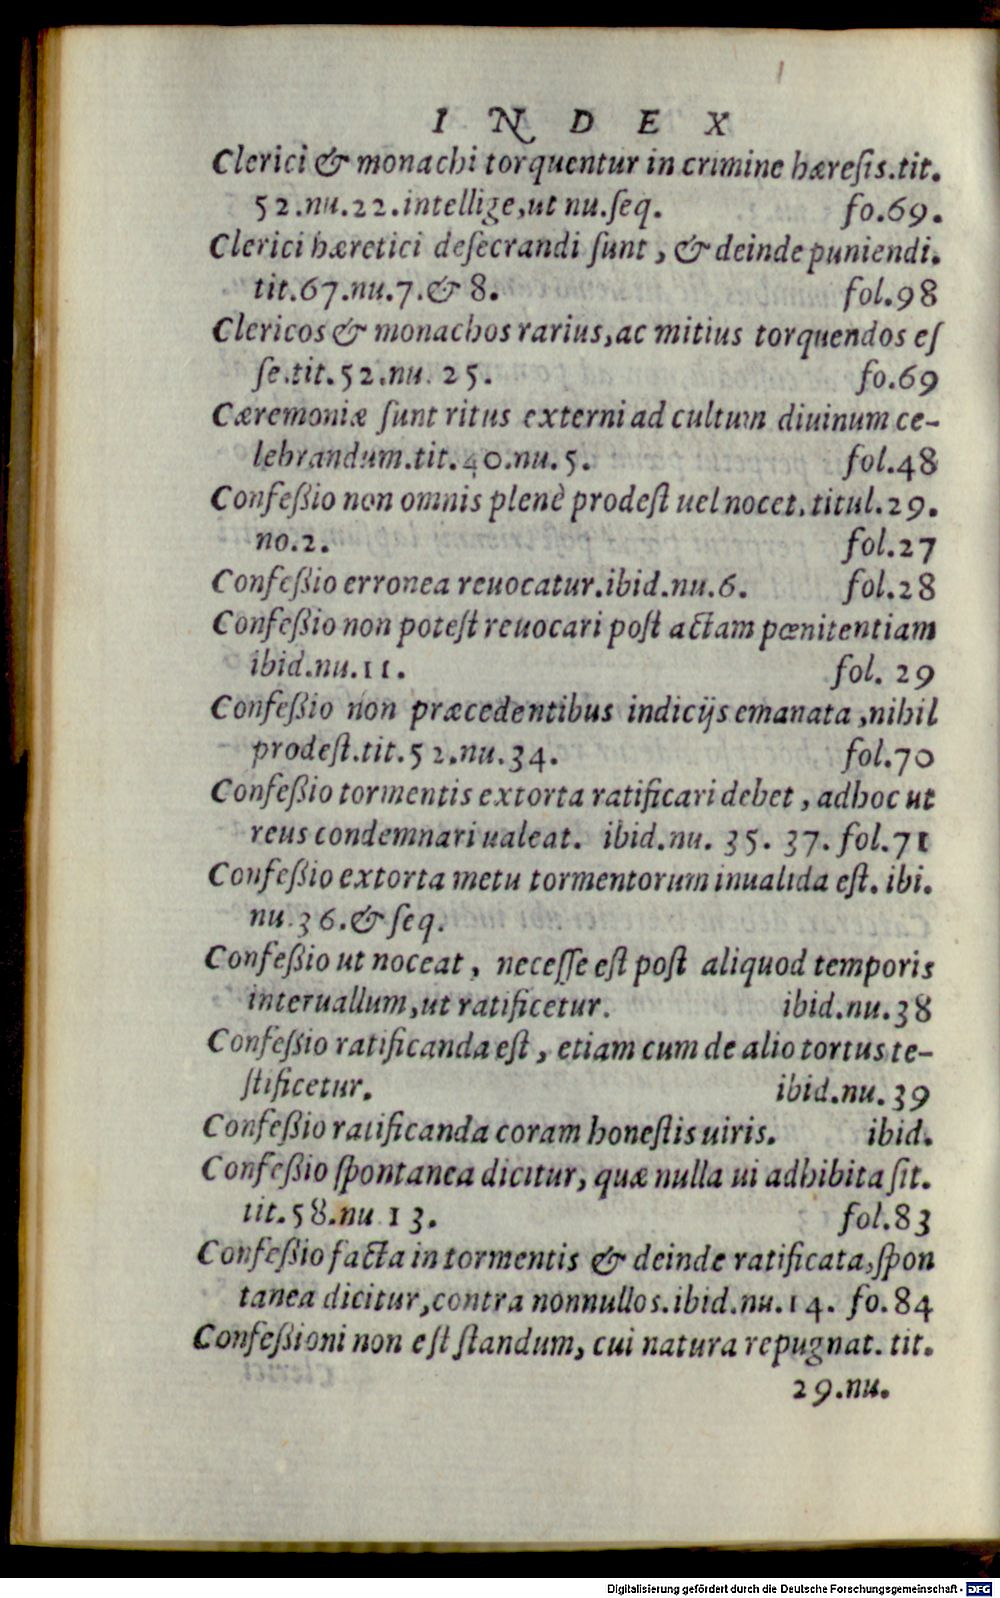 INDEX
Clerici & monachi torquentur in crimine hæresis.tit.
52.nu.22.intellige,ut nu.seq. fo.69.
Clerici hæretici desecrandi sunt, & deinde puniendi.
tit.67.nu.7.& 8. fol.98
Clericos & monachos rarius, ac mitius torquendos es
se.tit.52.nu.25. fo.69
Cæremoniæ sunt ritus externi ad cultum diuinum ce-
lebrandum.tit.40.nu.5. fol.48
Confeßio non omnis plenè prodest uel nocet. titul.29.
no.2. fol.27
Confeßio erronea reuocatur.ibid.nu.6. fol.28
Confeßio non potest reuocari post actam pœnitentiam
ibid.nu.11. fol. 29
Confeßio non præcedentibus indicijs emanata, nihil
prodest.tit.52.nu.34. fol.70
Confeßio tormentis extorta ratificari debet, adhoc ut
reus condemnari ualeat. ibid.nu. 35. 37. fol.71
Confeßio extorta metu tormentorum inualida est. ibi.
nu.36.& seq.
Confeßio ut noceat, necesse est post aliquod temporis
interuallum, ut ratificetur. ibid.nu.38
Confessio ratificanda est, etiam cum de alio tortus te-
stificetur. ibid.nu.39
Confeßio ratificanda coram honestis uiris. ibid.
Confeßio spontanea dicitur, quæ nulla ui adhibita sit.
tit.58.nu 13. fol.83
Confeßio facta in tormentis & deinde ratificata, spon
tanea dicitur, contra nonnullos.ibid.nu.14. fo.84
Confeßioni non est standum, cui natura repugnat. tit.
29.nu.
Digitalisierung gefördert durch die Deutsche Forschungsgemeinschaft - DFG